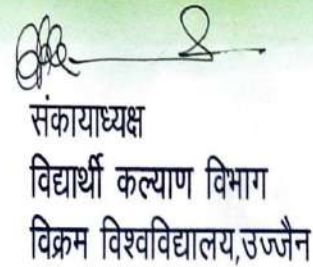 संकायाध्यक्ष
विद्यार्थी कल्याण विभाग
विक्रम विश्वविद्यालय,उज्जैन